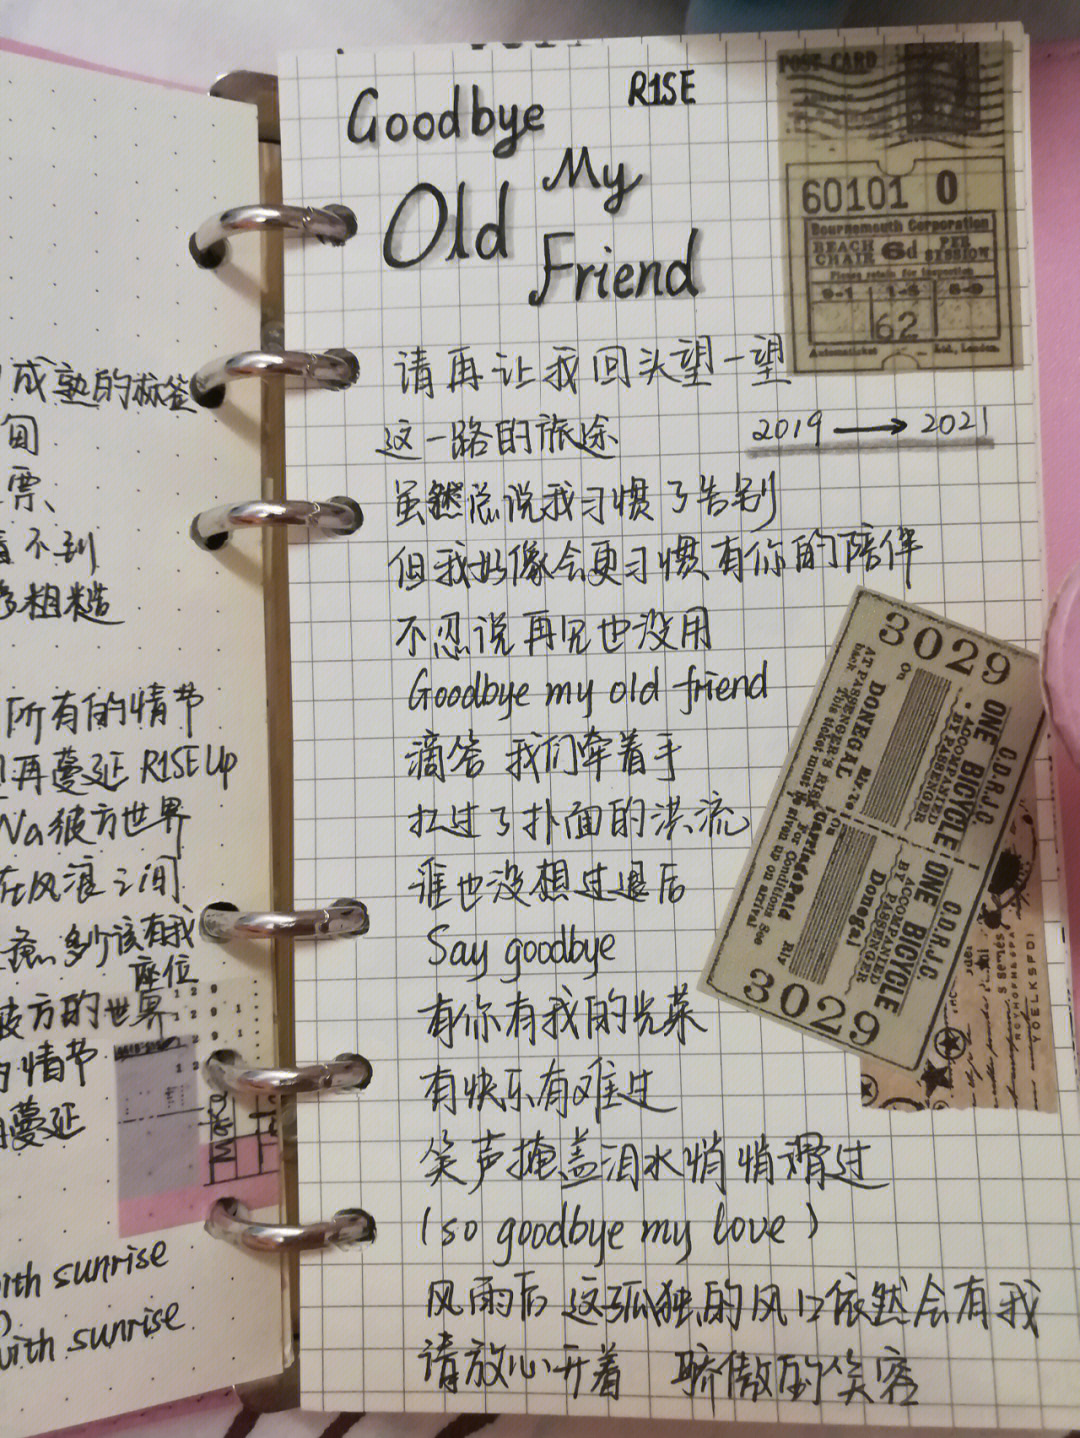 成熟的标签
票、
不到
粗糙
所有的情节
再蔓延 R1SE Up
Na彼方世界
在风浪之间
多少该有我
座位
彼方的世界
情节
蔓延
with sunrise
with sunrise
Goodbye
R1SE
My
Old
Friend
请再让我回头望一望
这一路的旅途
2019 → 2021
虽然总说我习惯了告别
但我好像会更习惯有你的陪伴
不忍说再见也没用
Goodbye my old friend
滴答 我们牵着手
扛过了扑面的洪流
谁也没想过退后
Say goodbye
有你有我的光荣
有快乐有难过
笑声掩盖泪水悄悄滑过
(so goodbye my love)
风雨后 这孤独的风口依然会有我
请放心开着 骄傲的笑容
POST CARD
60101 0
Bournemouth Corporation
BEACH CHAIR 6d PER SESSION
Please retain for inspection
9-1 1-5 5-9
62
Automaticket Ltd., London.
3029
C.D.R.J.C.
ONE BICYCLE
ACCOMPANIED
BY PASSENGER
DONEGAL
AT PASSENGER'S RISK
This ticket must be given up on arrival
Carriage Paid
For Conditions See back
C.D.R.J.C.
ONE BICYCLE
ACCOMPANIED
BY PASSENGER
Donegal
3029